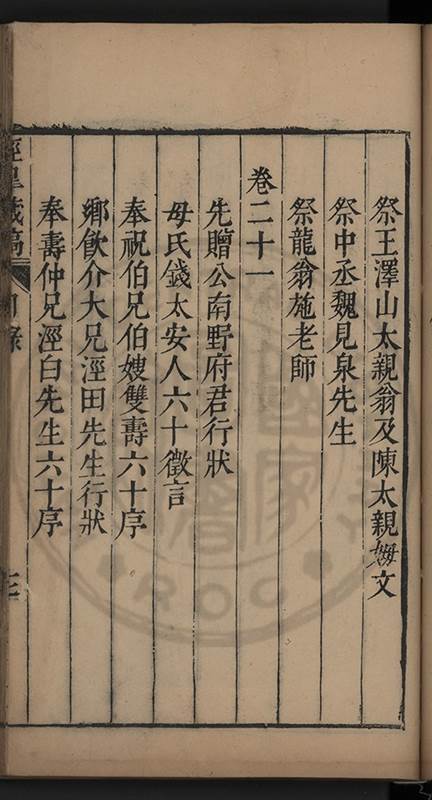 祭王澤山太親翁及陳太親姆文
祭中丞魏見泉先生
祭龍翁施老師
卷二十一
先贈公南野府君行狀
母氏錢太安人六十徵言
奉祝伯兄伯嫂雙壽六十序
鄉飲介大兄涇田先生行狀
奉壽仲兄涇白先生六十序
涇皋藏稿
目錄